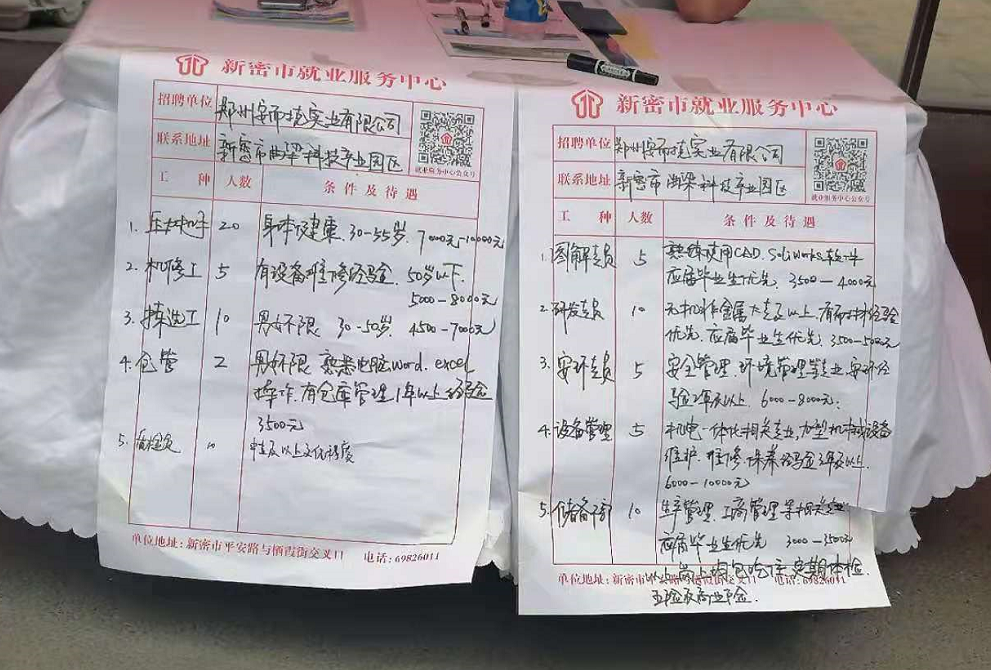 新密市就业服务中心
招聘单位 郑州安耐捷实业有限公司
联系地址 新密市曲梁科技产业园区
就业服务中心公众号
工 种 人数 条件及待遇
1. 压砖机手 20 身体健康. 30-55岁. 7000元-10000元
2. 机修工 5 有设备维修经验. 50岁以下.
5000-8000元
3. 拣选工 10 男女不限 30-50岁. 4500-7000元
4. 仓管 2 男女不限 熟悉电脑word. excel
操作. 有仓库管理1年以上经验
3500元
5. 质检员 10 中专及以上文化程度
单位地址:新密市平安路与栖霞街交叉口 电话:69826011
新密市就业服务中心
招聘单位 郑州安耐捷实业有限公司
联系地址 新密市曲梁科技产业园区
就业服务中心公众号
工 种 人数 条件及待遇
1. 图解专员 5 熟练使用CAD. Soliworks软件
应届毕业生优先. 3500-4000元
2. 研发专员 10 无机非金属大专及以上. 有耐材经验
优先. 应届毕业生优先. 3500-5000元
3. 安环专员 5 安全管理. 环境管理等专业. 安环经
验2年及以上. 6000-8000元.
4. 设备管理 5 机电一体化相关专业. 大型机械设备
维护. 维修. 保养经验3年及以上.
6000-10000元
5. 储备干部 10 生产管理. 工商管理等相关专业
应届毕业生优先 3000-3500元
以上岗位均包吃住. 定期体检.
单位地址:新密市平安路与栖霞街交叉口 电话:69826011
五险及商业险.